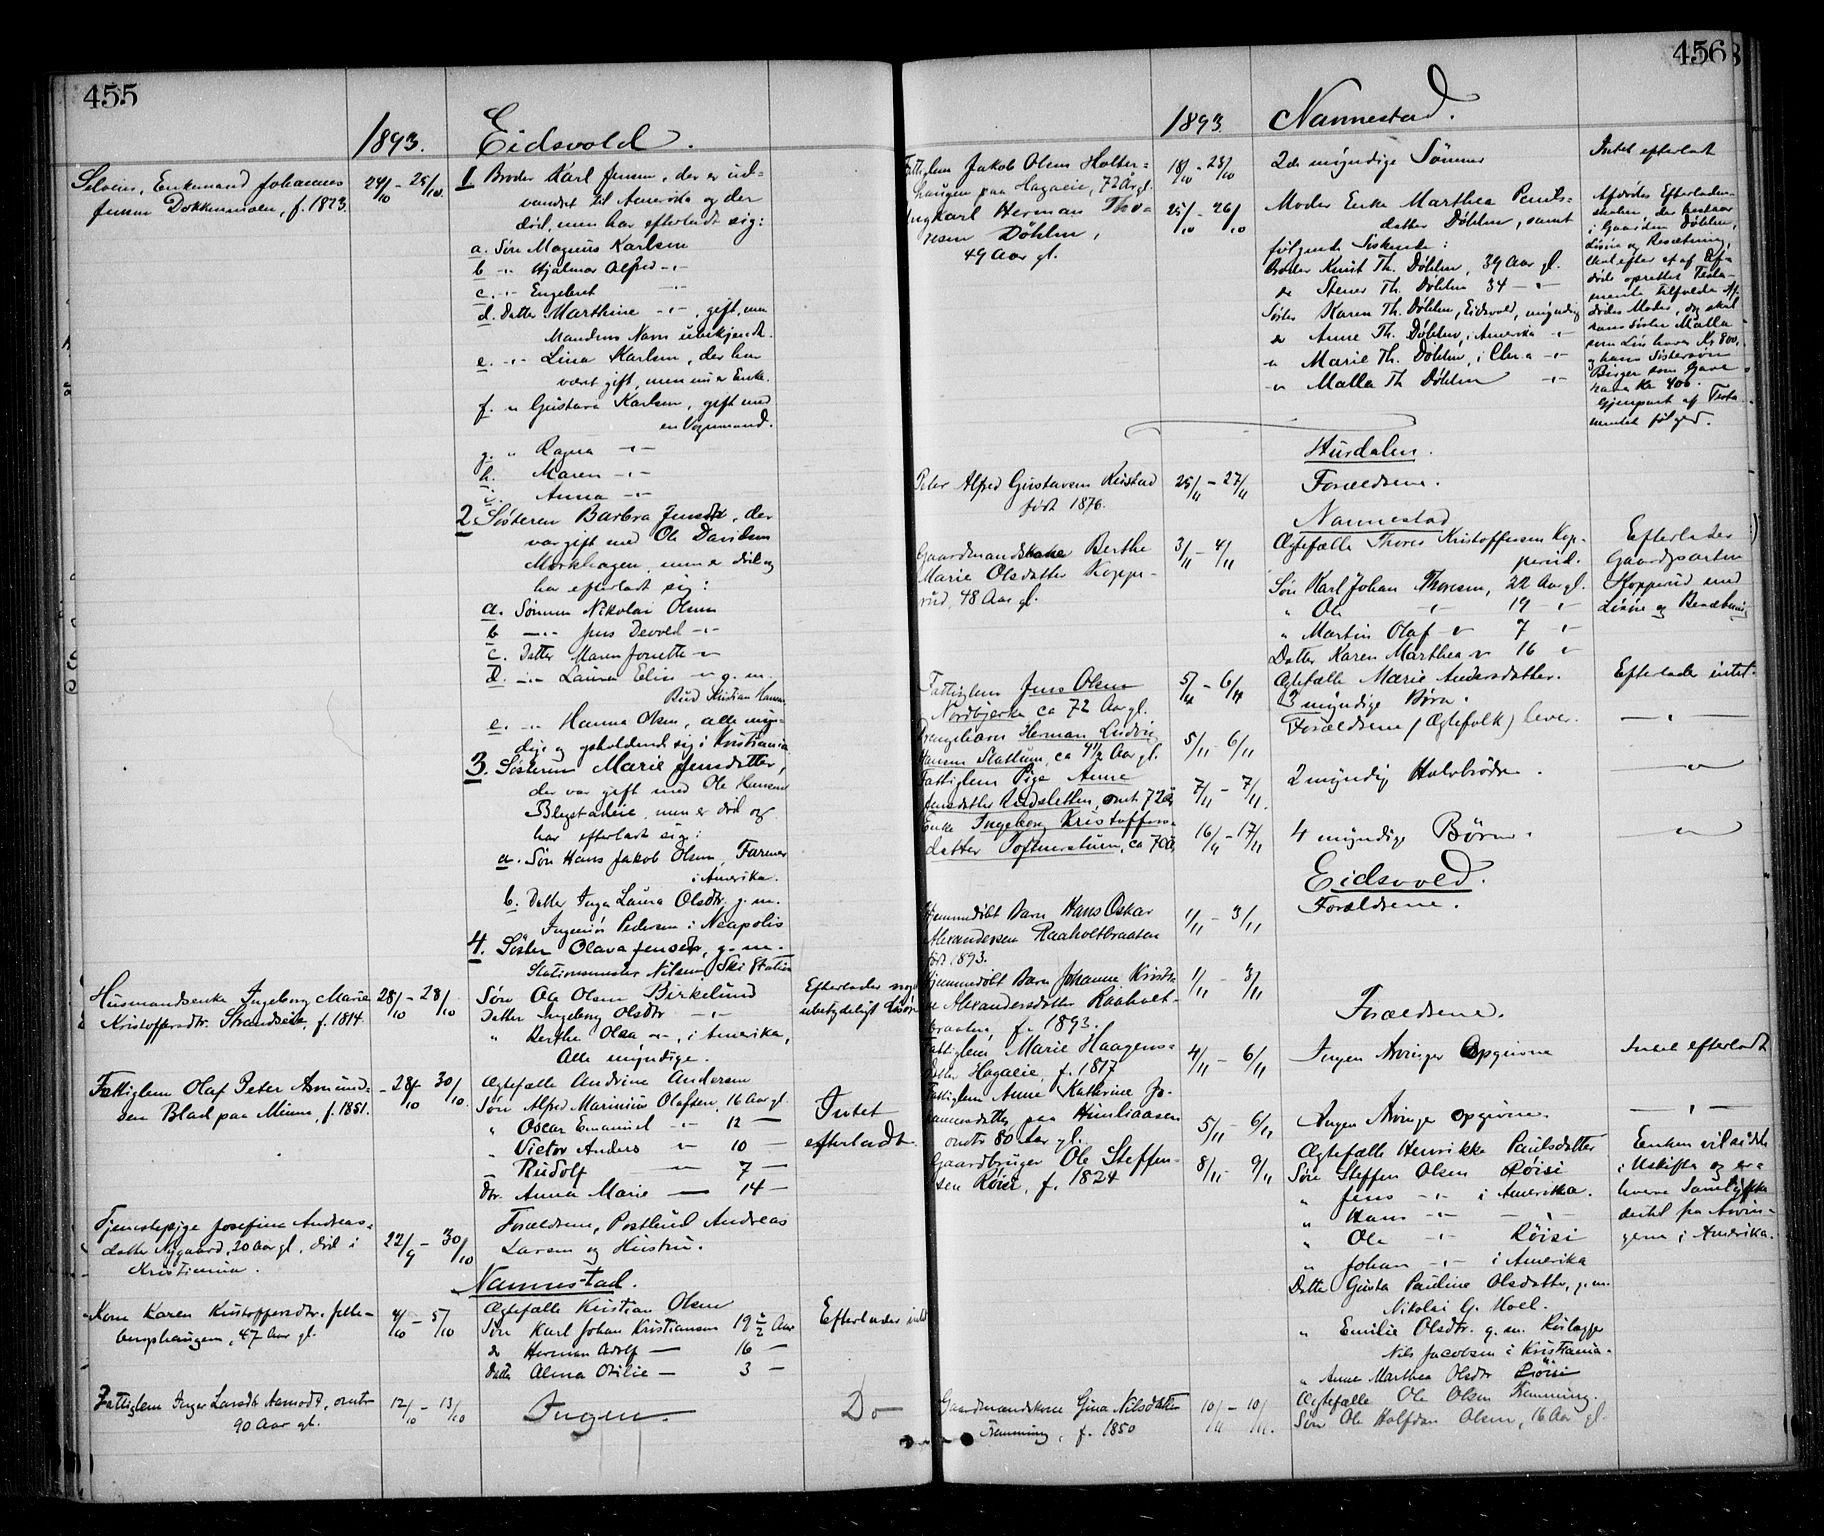 455
1893. Eidsvold.
Selveier, Enkemand Johannes
Jensen Dokkenmoen, f. 1823.
24/10 - 25/10.
1. Broder Karl Jensen, der er ud-
vandret til Amerika og der
død, men har efterladt sig:
a. Søn Magnus Karlsen
b -"- Hjalmar Alfred -"-
c. -"- Engebret -"-
d. Datter Marthine -"-, gift, men
Mandens Navn ubekjendt.
e. -"- Lina Karlsen, der har
været gift, men nu er Enke.
f. " Gustava Karlsen, gift med
en Vognmand.
g. " Ragna -"-
h. Maren -"-
i. Anna -"-
2. Søsteren Barbra Jensdtr, der
var gift med Ole Davidsen
Morkhagen, men er død og
har efterladt sig:
a. Sønnen Nikolai Olsen
b -"- Jens Devold -"-
c. Datter Maren Jonette -"-
d. -"- Laura Elise -"- g. m.
Bud Kristian Hansen
e. -"- Hanna Olsen, alle myn-
dige og opholdende sig i Kristiania
3. Søsteren Marie Jensdatter,
der var gift med Ole Hansen
Blegstadeie, men er død og
har efterladt sig:
a. Søn Hans Jakob Olsen, Farmer
i Amerika.
b. Datter Inga Laura Olsdtr. g. m.
Ingeniør Pedersen i Neapolis
4. Søster Olava Jensdtr, g. m.
Stationsmester Nilsen Ski Station
Husmandsenke Ingeborg Marie
Kristoffersdtr. Strandseie, f. 1814.
28/10 - 28/10
Søn Ole Olsen Birkelund
Datter Ingeborg Olsdtr -"-
" Berthe Olea -"-, i Amerika,
Alle myndige.
Efterlader noget
ubetydeligt Løsøre
Fattiglem Olaf Peter Asmund-
sen Blad paa Minne, f. 1851.
28/10 - 30/10.
Ægtefælle Andrine Andersen
Søn Alfred Marinius Olafsen, 16 Aar gl.
" Oscar Emanuel -"- 12 —
" Victor Anders -"- 10 —
" Rudolf -"- 7 —
Dtr. Anna Marie — 14 —
Intet
efterladt.
Tjenestepige Josefine Andreas-
datter Nygaard, 20 Aar gl, død i
Kristiania.
22/9 - 30/10
Forældrene, Postbud Andreas
Larsen og Hustru.
Nannestad.
Kone Karen Kristoffersdtr.
47 Aar gl.
4/10 - 5/10
Ægtefælle Kristian Olsen
Søn Karl Johan Kristiansen 19 1/2 Aar
do Herman Adolf — 16 —
Datter Alma Otilie — 3 —
Efterlader intet
Fattiglem Inger Larsdt Aamodt, omtr
90 Aar gl.
12/10 - 13/10
Ingen.
Do
456
1893 Nannestad.
Fattiglem Jakob Olsen Holter-
haugen paa Hagaeie, 72 Aar gl.
18/10 - 23/10
2de myndige Sønner
Intet efterladt
Ungkarl Herman Tho-
resen Døhlen,
49 Aar gl.
25/10 - 26/10
Moder Enke Marthea Pauls-
datter Døhlen, samt
følgende Søskende:
Broder Knut Th. Døhlen, 39 Aar gl.
do Stener Th. Døhlen 34 — " —
Søster Karen Th. Døhlen, Eidsvold, myndig
do Anne Th. Døhlen, i Amerika -"-
-"- Marie Th. Døhlen, i Chr.a -"-
-"- Malla Th Døhlen -"-
Afdødes Efterladen-
skaber, der bestaar
i Gaarden Døhlen,
Løsøre og Besætning,
skal efter et af Af-
døde oprettet Testa-
mente tilfalde Af-
dødes Moder, dog skal
hans Søster Malla
som Løn have Kr 800,
og hans Søstersøn
Birger som Gave
have Kr 400.
Gjenpart af Testa-
mentet følger.
Hurdalen.
Peter Alfred Gustavsen Knistad
født 1876.
25/11 - 27/11
Forældrene.
Nannestad
Gaardmandskone Berthe
Marie Olsdatter Koppe-
rud, 48 Aar gl.
3/11 - 4/11
Ægtefælle Thores Kristoffersen Kop-
perud.
Søn Karl Johan Thoresen, 22 Aar gl.
" Ole -"- 19 -"-
" Martin Olaf -"- 7 -"-
Datter Karen Marthea -"- 16 "
Efterlader
Gaardparten
Kopperud med
Løsøre og Besætning
Fattiglem Jens Olsen
Nordbjerke ca 72 Aar gl.
5/11 - 6/11
Ægtefælle Marie Andersdatter.
3 myndige Børn.
Efterlader intet.
Drengebarn Herman Ludvig
Hansen Slattum, ca 4 1/2 Aar gl.
5/11 - 6/11
Forældrene (Ægtefolk) lever.
— " —
Fattiglem Pige Anne
Jensdatter Andsletten, omt 72 Aar
7/11 - 7/11.
2 myndig Halvbrødre.
— " —
Enke Ingeborg Kristoffers-
datter Toftnerstuen, ca 70 Aar
16/11 - 17/11
4 myndige Børn.
— " —
Eidsvold.
Hjemmedøbt Barn Hans Oskar
Alexandersen Raaholtbraaten
født 1893.
1/11 - 3/11
Forældrene.
Hjemmedøbt Barn Johanne Kristi-
ne Alexandersdatter Raaholt-
braaten, f. 1893.
1/11 - 3/11
Forældrene.
Fattiglem Marie Haagens-
datter Hagaeie, f. 1817
4/11 - 6/11
Ingen Arvinger Opgivne
Intet efterladt
Fattiglem Anne Katherine Jo-
hannesdatter, paa Humliaasen
omtr 80 Aar gl.
5/11 - 6/11
Ingen Arvinger opgivne.
— " —
Gaardbruger Ole Steffen-
sen Røise, f. 1824
8/11 - 9/11
Ægtefælle Henrikke Paulsdatter
Søn Steffen Olsen Røisi
" Jens -"- i Amerika.
" Hans -"- — " —
" Ole -"- Røisi
" Johan -"- i Amerika
Datter Gusta Pauline Olsdatter, g. m.
Nikolai G. Hoel.
" Emilie Olsdtr. g. m.
Nils Jacobsen i Kristiania.
" Anne Marthea Olsdtr Røisi
Enken vil sidde
i Uskifte og er-
hverve Samtykke
dertil fra Arvin-
gerne i Amerika.
Gaardmandskone Gina Nilsdatter
Femming, f. 1850
10/11 - 10/11.
Ægtefælle Ole Olsen Femming.
Søn Ole Halfdan Olsen, 16 Aar gl.